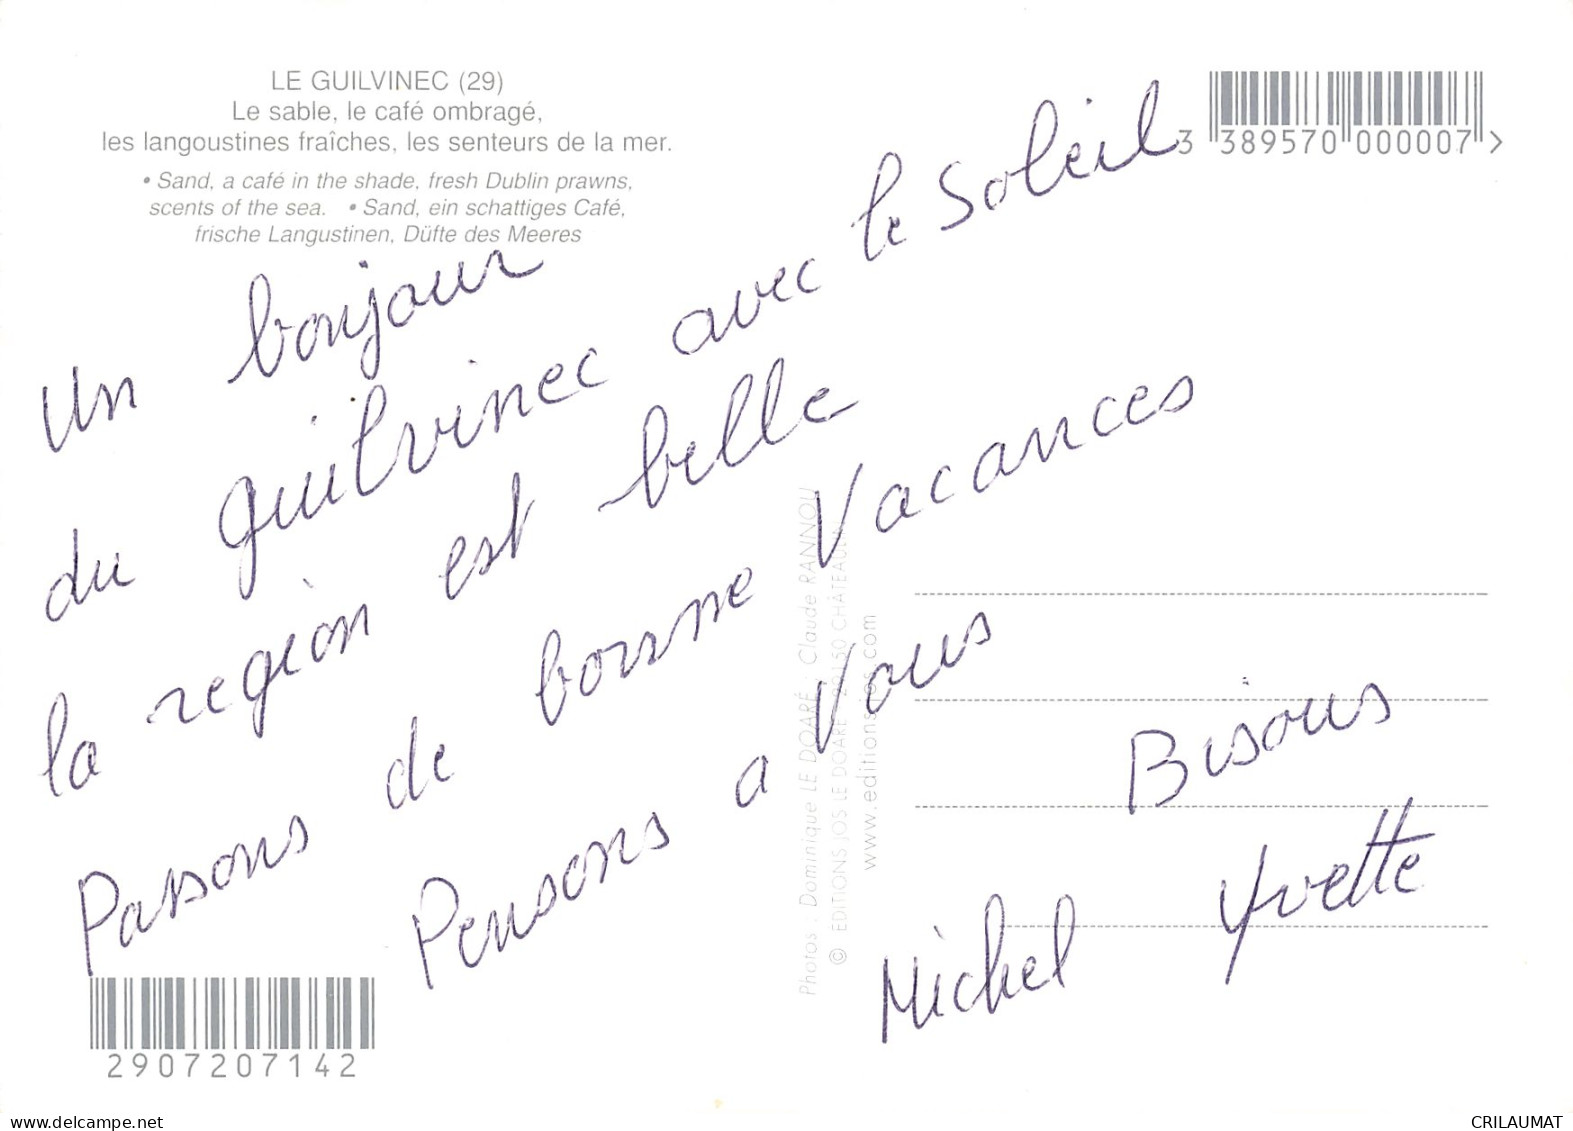 LE GUILVINEC (29)
Le sable, le café ombragé,
les langoustines fraîches, les senteurs de la mer.
• Sand, a café in the shade, fresh Dublin prawns,
scents of the sea. • Sand, ein schattiges Café,
frische Langustinen, Düfte des Meeres
3 389570 000007 >
Un bonjour
du guilvinec avec le Soleil
la region est belle
Passons de bonne Vacances
Pensons a Vous
Bisous
Michel Yvette
Photos : Dominique LE DOARÉ - Claude RANNOU
© EDITIONS JOS LE DOARÉ - 29150 CHÂTEAULIN
www.editionsjos.com
2907207142
CRILAUMAT